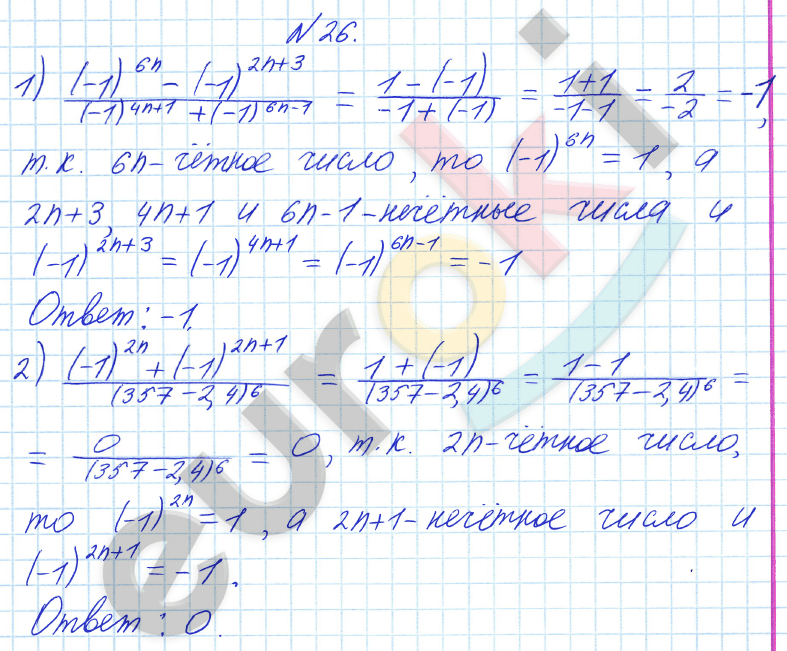 N 26.
1) ((-1)^6n - (-1)^2n+3) / ((-1)^4n+1 + (-1)^6n-1) = (1-(-1)) / (-1+(-1)) = (1+1) / (-1-1) = 2 / -2 = -1,
т.к. 6n-чётное число, то (-1)^6n = 1, а
2n+3, 4n+1 и 6n-1-нечётные числа и
(-1)^2n+3 = (-1)^4n+1 = (-1)^6n-1 = -1
Ответ: -1.
2) ((-1)^2n + (-1)^2n+1) / (357-2,4)^6 = (1+(-1)) / (357-2,4)^6 = (1-1) / (357-2,4)^6 =
= 0 / (357-2,4)^6 = 0, т.к. 2n-чётное число,
то (-1)^2n = 1, а 2n+1-нечётное число и
(-1)^2n+1 = -1.
Ответ: 0.
euroki